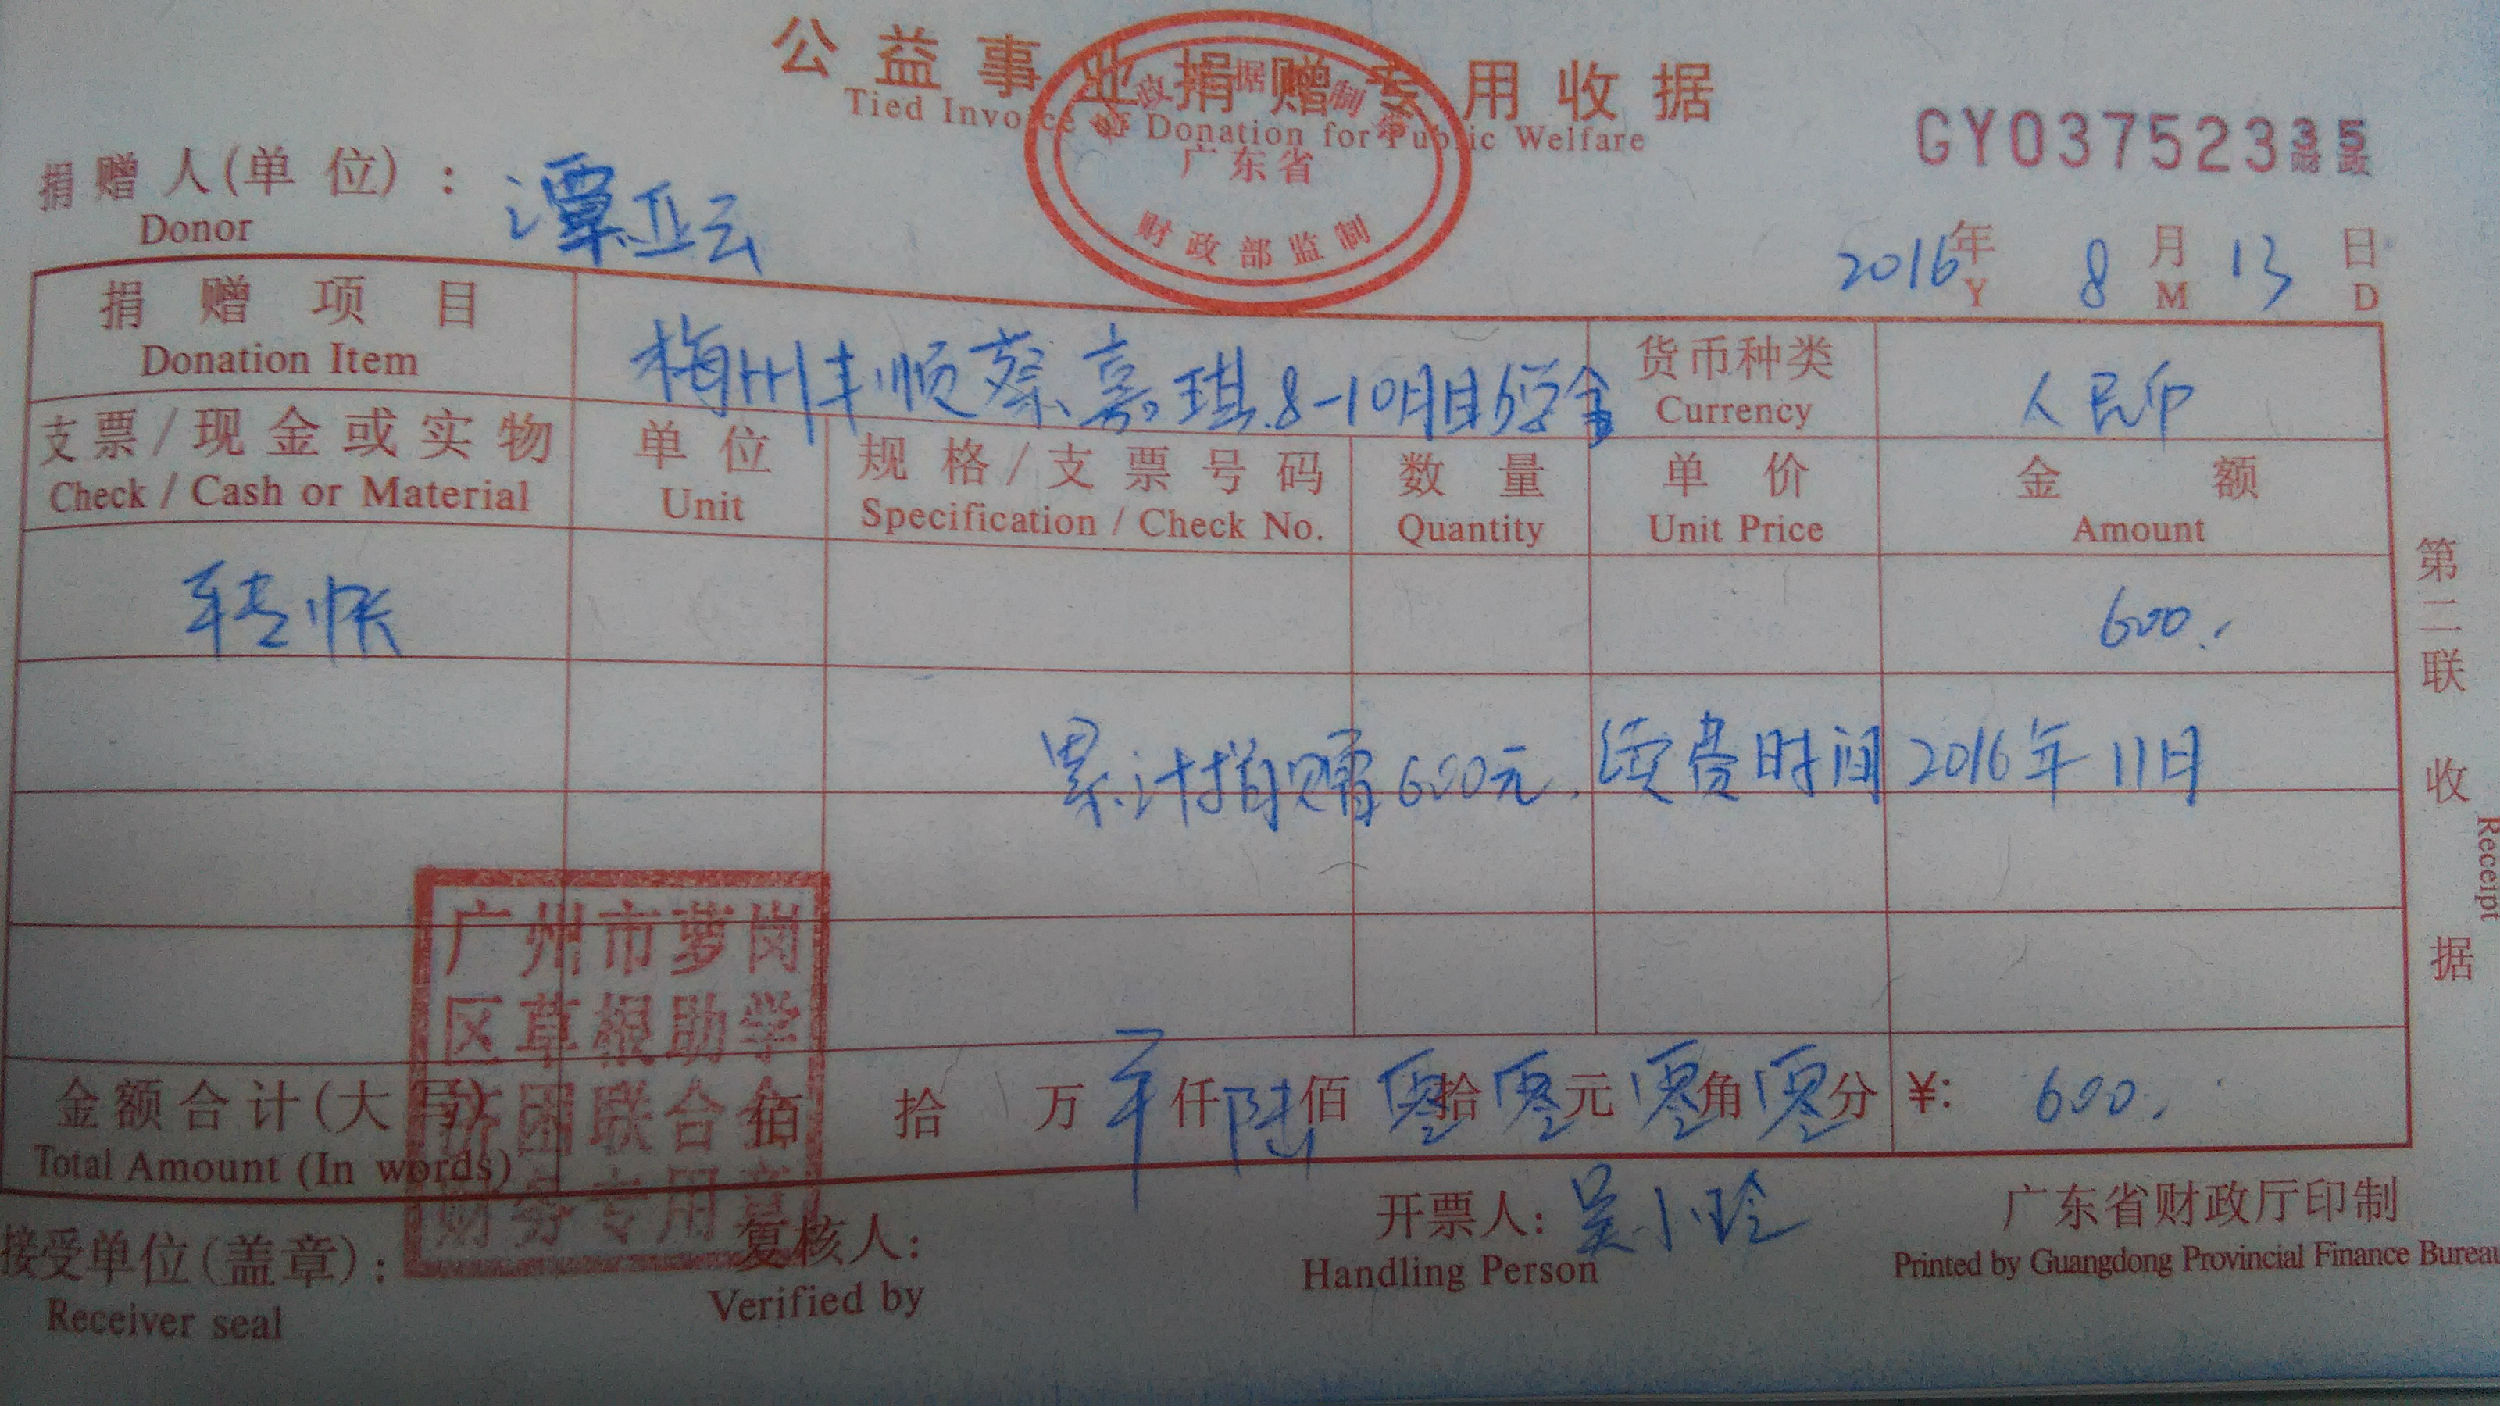 公益事业捐赠专用收据
Tied Invoice of Donation for Public Welfare
广东省
财政部监制
GY03752335
捐赠人(单位): 潭亚云
Donor
2016年 8月 13日
Y M D
捐赠项目 梅州丰顺蔡嘉琪8-10月助学金 货币种类 人民币
Donation Item Currency
支票/现金或实物 单位 规格/支票号码 数量 单价 金额
Check / Cash or Material Unit Specification / Check No. Quantity Unit Price Amount
转账 600.
累计捐赠600元, 续费时间2016年11月
第二联 收据
Receipt
广州市萝岗
区草根助学
团联合
财务专用章
金额合计(大写) 佰 拾 万 仟陆佰零拾零元零角零分 ¥: 600.
Total Amount (In words)
接受单位(盖章): 复核人: 开票人: 吴小玲 广东省财政厅印制
Receiver seal Verified by Handling Person Printed by Guangdong Provincial Finance Bureau